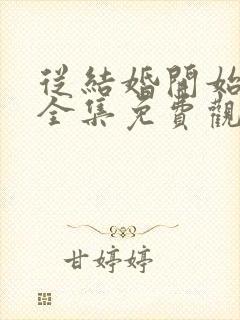 從結婚開始
全集免費觀
甘婷婷